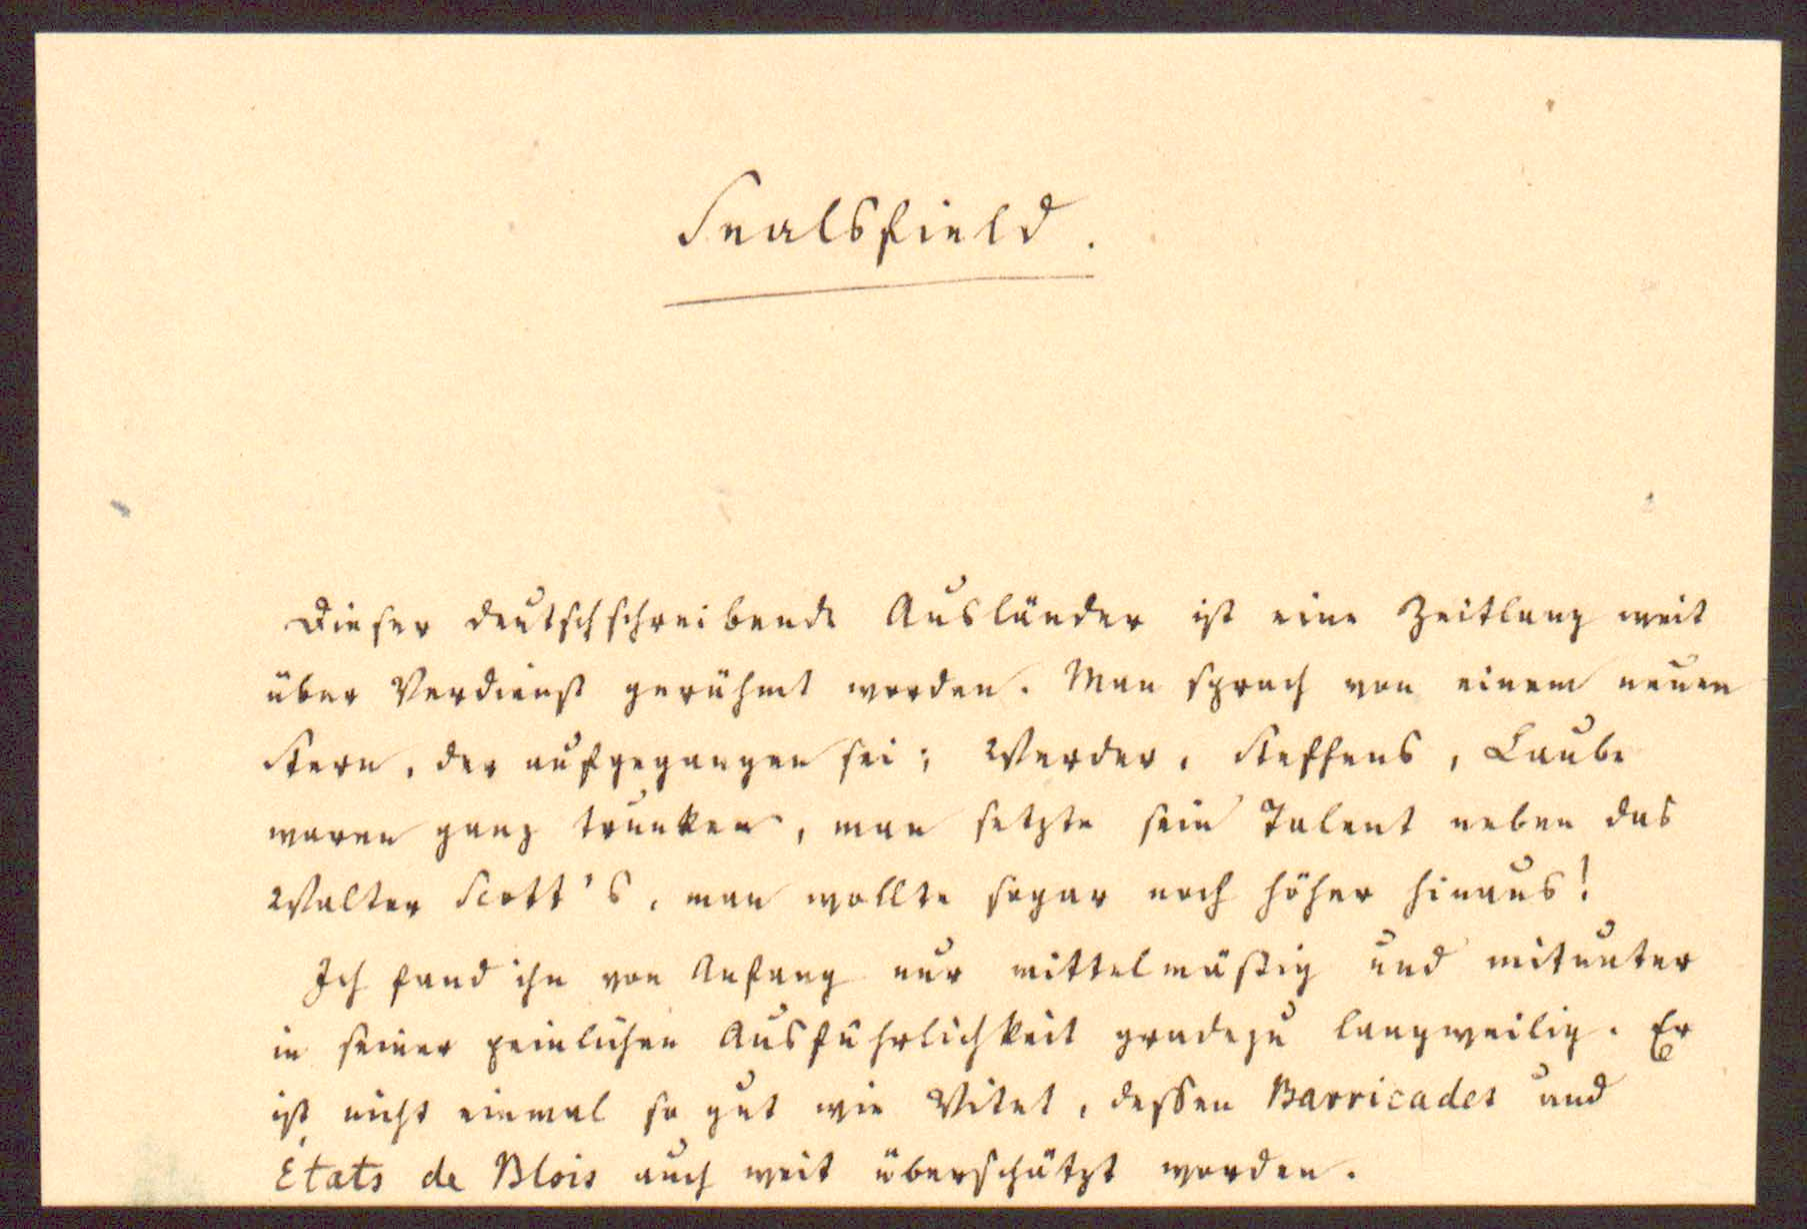 Sealsfield.
Dieser deutschschreibende Ausländer ist eine Zeitlang weit
über Verdienst gerühmt worden. Man sprach von einem neuen
Stern, der aufgegangen sei; Werder, Steffens, Laube
waren ganz trunken, man setzte sein Talent neben das
Walter Scott's, man wollte sogar noch höher hinaus!
Ich fand ihn von Anfang nur mittelmäßig und mitunter
in seiner peinlichen Ausführlichkeit gradezu langweilig. Er
ist nicht einmal so gut wie Vitet, dessen Barricades und
États de Blois auch weit überschätzt worden.